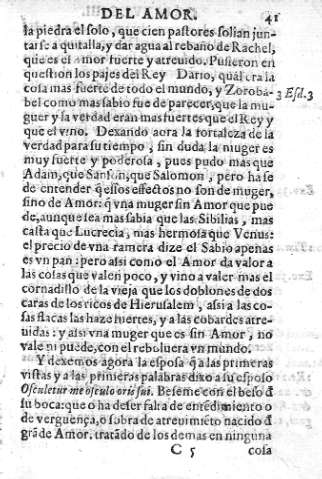 DEL AMOR. 41
la piedra el solo, que cien pastores solian jun-
tarse a quitalla, y dar agua al rebaño de Rachel,
que es el amor fuerte y atreuido. Pusieron en
question los pajes del Rey Dario, quàl era la
cosa mas fuerte de todo el mundo, y Zoroba-
3 Esd. 3
bel como mas sabio fue de parecer, que la mu-
ger y la verdad eran mas fuertes que el Rey y
que el vino. Dexando aora la fortaleza de la
verdad para su tiempo, sin duda la muger es
muy fuerte y poderosa, pues pudo mas que
Adam, que Sanson, que Salomon, pero ha se
de entender q̃ essos effectos no son de muger,
sino de Amor: q̃ vna muger sin Amor que pue
de, aunque sea mas sabia que las Sibilias, mas
casta que Lucrecia, mas hermosa que Venus:
el precio de vna ramera dize el Sabio apenas
es vn pan: pero assi como el Amor da valor a
las cosas que valen poco, y vino a valer mas el
cornadillo de la vieja que los doblones de dos
caras de los ricos de Hierusalem, assi a las co-
sas flacas las haze fuertes, y a las cobardes atre-
uidas: y assi vna muger que es sin Amor, no
vale ni puede, con el reboluera vn mundo.
Y dexemos agora la esposa q̃ a las primeras
vistas y a las primeras palabras dixo a su esposo
Osculetur me osculo oris sui. Beseme con el beso d̃
su boca: que o ha de ser falta de entẽdimiento o
de verguença, o sobra de atreuimiẽto nacido d̃
grãde Amor. tratãdo de los demas en ninguna
C 5 cosa